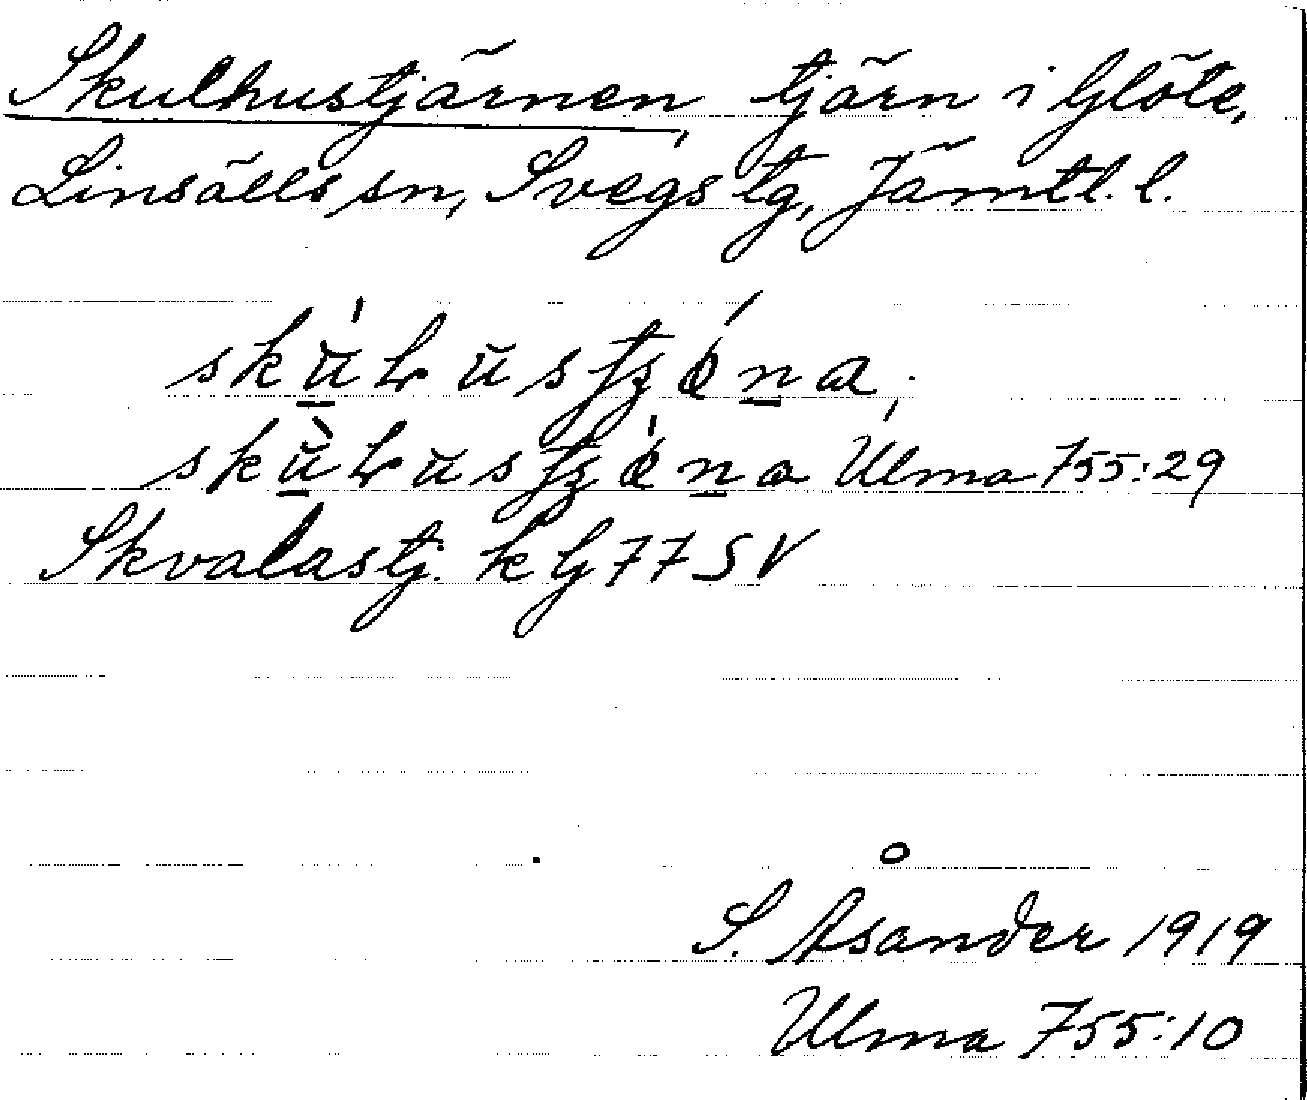 Skulhustjärnen, tjärn i Glöte,
Linsälls sn, Svegs tg, Jämtl. l.
Ulma 755:29
Skvalastj. k bj 77 SV
S. Åsander 1919
Ulma 755:10